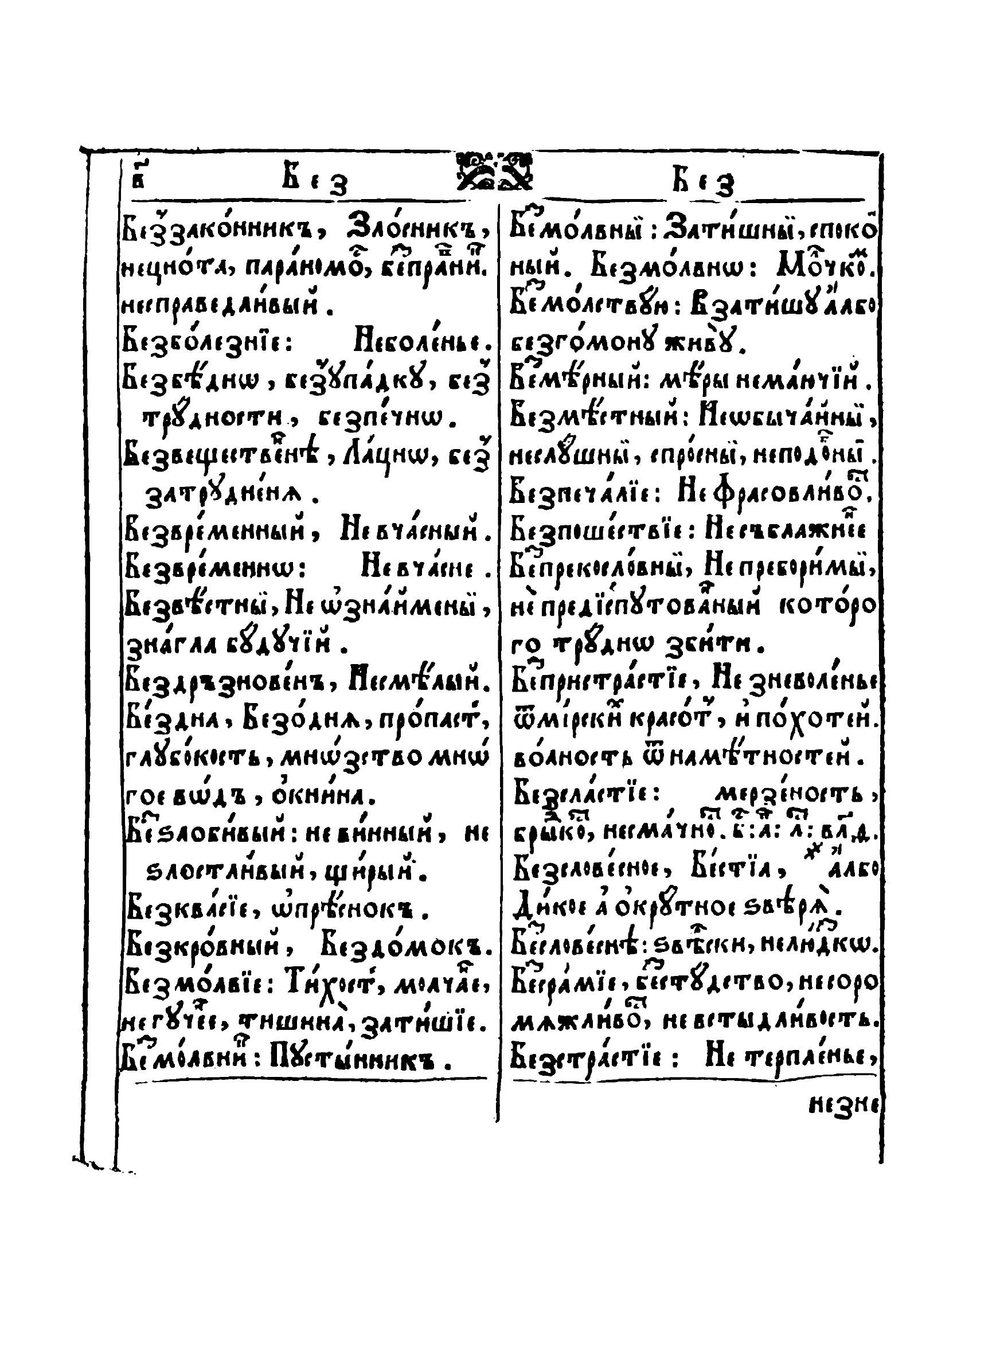 в҃ Без
Без̾зако́нникъ, Зло́сникъ,
нецно́та, пара́номо, беспра́ни.
несправедли́вый.
Безболезнїе: Неболе́нье.
Безбѣ́днѡ, без̾ꙋпа́дкꙋ, без̾
трꙋ́дности, безпе́чнѡ.
Безвеществе́нѣ, Ла́цнѡ, без̾
затрꙋдне́нѧ.
Безвре́менный, Невча́сный.
Безвре́меннѡ: Невча́сне.
Безвѣ́стныї, Не ѡ҆зна́йменыї,
зна́гла бꙋ́дꙋчїй.
Бездръзнове́нъ, Несмѣ́лый.
Бе́здна, Безо́днѧ, про́паст,
глꙋбо́кость, мнѡ́зство мнѡ́
гое вѡ́дъ, ѻ҆кни́на.
Беѕлоби́вый: неви́нный, не
ѕлостли́вый, щи́рый.
Безква́сїе, ѡ҆прѣ́снокъ.
Безкро́вный, Бездо́мокъ.
Безмо́лвїе: Ти́хост, молча́е,
негꙋ́чее, тишина̀, зати́шїе.
Безмо́лвни: Пꙋсты́нникъ.
Без
Безмо́лвныї: Зати́шныї, споко́
ный. Безмо́лвнѡ: Мо́чкѡ.
Безмо́лствꙋю: В зати́шꙋ а҆лбо
безго́монꙋ живꙋ̀.
Безмѣ́рный: мѣ́ры нема́ючїй.
Безмѣ́стный: Неѡбыча́йныї,
неслꙋ́шныї, спро́сныї, неподо́ныї.
Безпеча́лїе: Не фрасовли́во.
Безпоше́ствїе: Несъблажне́е
Безпрекосло́вныї, Непребори́мыї,
нѐпредїспꙋтова́ный кото́ро
го трꙋ́днѡ збити.
Безпристра́стїе, Не зневоле́нье
ѿ мі́рски красо́т, и҆ по́хотей.
во́лность ѿ намѣ́тностей.
Безсла́стїе: мерзе́ность,
бры́ко, несма́чно.
Безслове́сное, Бе́стїа, а҆лбо
Ди́кое а҆ ѻ҆крꙋ́тное ѕвѣ́рѧ.
Безслове́снѣ: ѕвѣ́рски, нелю́дкѡ.
Безсра́мїе, безстꙋ́дство, несоро
мѧжли́во, невстыдли́вость.
Безстра́стїе: Не терпле́нье,
незне